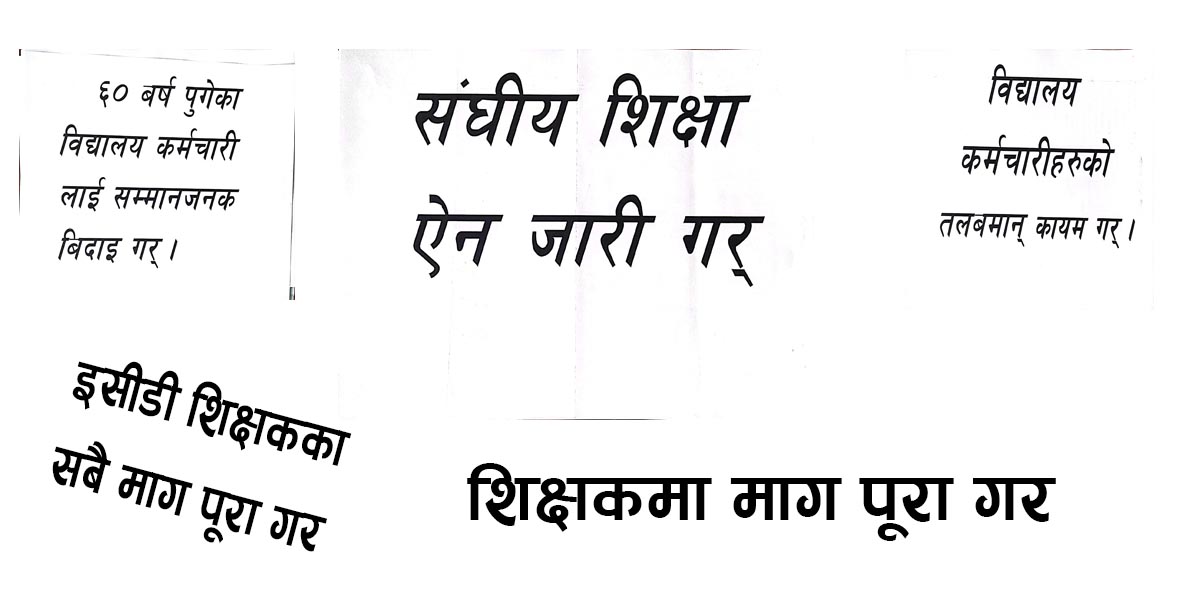 ६० बर्ष पुगेका
विद्यालय कर्मचारी
लाई सम्मानजनक
बिदाइ गर् ।
संघीय शिक्षा
ऐन जारी गर्
विद्यालय
कर्मचारीहरुको
तलबमान् कायम गर् ।
इसीडी शिक्षकका
सबै माग पूरा गर
शिक्षकमा माग पूरा गर